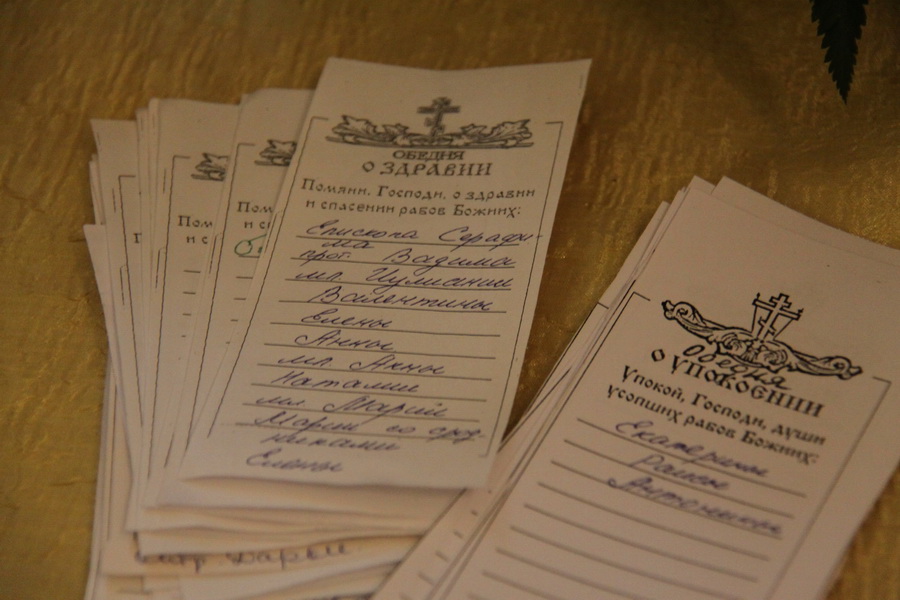 ОБЕДНЯ
О ЗДРАВИИ
Помяни, Господи, о здравии
и спасении рабов Божиих:
Епископа Серафи-
ма
прот. Вадима
мл. Иулиании
Валентины
Елены
Анны
мл. Анны
Наталии
мл. Марии
Марии со срод-
никами
Елены
Пом
и с
Пом
и с
Дарьи
Обедня
О УПОКОЕНИИ
Упокой, Господи, души
усопших рабов Божиих:
Екатерины
Раисы
Антонины